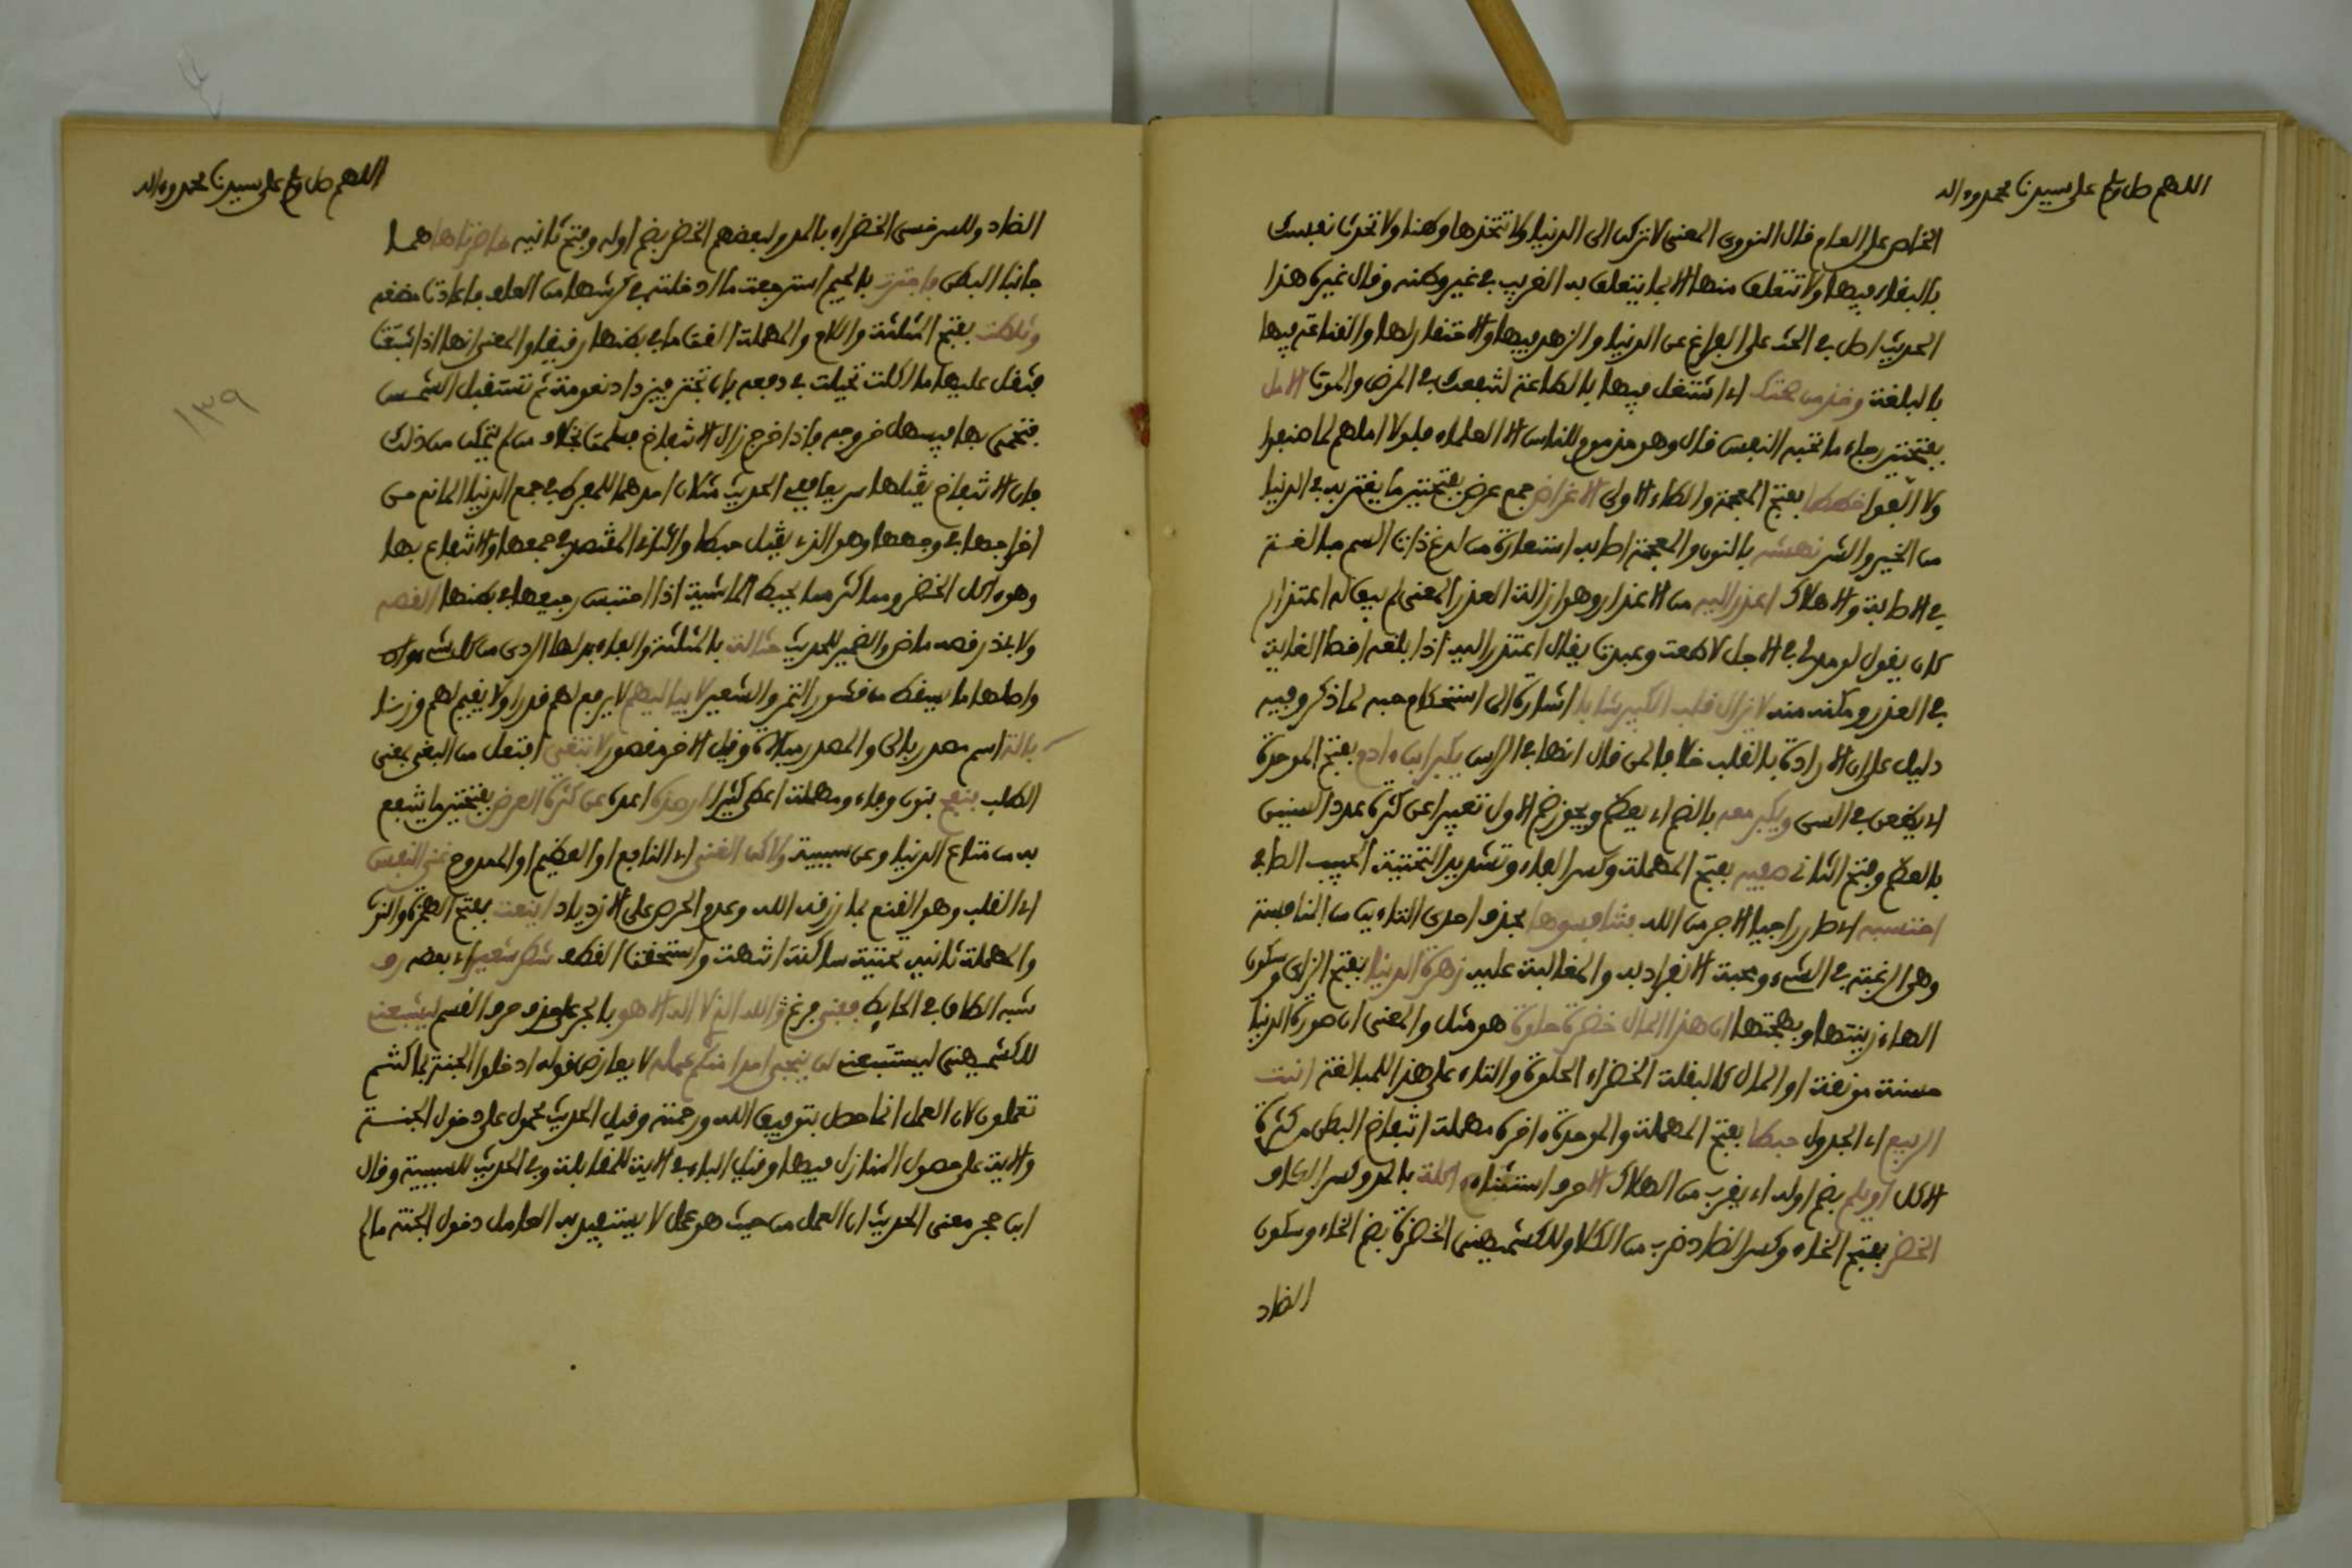 اللهم صل وسلم على سيدنا محمد وءاله
الخاص على العام قال النووي المعنى لا تركن الى الدنيا ولا تتخذها وطنا ولا تحدث نفسك
بالبقاء فيها ولا تتعلق منها الا بما يتعلق به الغريب في غير وطنه وقال غيره هذا
الحديث اصل في الحث على الفراغ عن الدنيا والزهد فيها والاحتقار لها والقناعة فيها
بالبلغة وخذ من صحتك اي اشتغل فيها بالطاعة لتنفعك في المرض والموت الامل
بفتحتين رجاء ما تحبه النفس قال وهو مذموم للناس الا العلماء فلولا املهم لما صنفوا
ولا الفوا خططا بفتح المعجمة والطاء الاولى الاعراض جمع عرض بفتحتين ما يغتر به في الدنيا
من الخير والشر نهشه بالنون والمعجمة اصابه استعارة من لدغ ذات السم مبالغة
في الاصابة والاهلاك اعذر اليه من الاعذار وهو ازالة العذر المعنى لم يبق له اعتذار
كان يقول لو مد لي في الاجل لاطعت وعبدت يقال اعتذر اليه اذا بلغه اقصا الغاية
في العذر ومكنه منه لا يزال قلب الكبير شابا اشارة الى استحكام حبه لما ذكر وفيه
دليل على ان الارادة بالقلب خلافا لمن قال انها في الراس يكبر ابن ءادم بفتح الموحدة
اي يطعن في السن ويكبر معه بالضم اي يعظم ويجوز ضم الاول تعبيرا عن كثرة عدد السنين
بالعظم وفتح الثاني صفيه بفتح المهملة وكسر الفاء وتشديد التحتية الحبيب الصافي
احتسبه اي صبر راجيا الاجر من الله بتنافسوها بحذف احدى التاءين من المنافسة
وهي الرغبة في الشيء ومحبة الانفراد به والمغالبة عليه زهرة الدنيا بفتح الزاي وسكون
الهاء زينتها وبهجتها ان هذا المال خضرة حلوة هو مثل والمعنى ان صورة الدنيا
حسنة مونقة او المال كالبقلة الخضراء الحلوة والتاء على هذا للمبالغة انبت
الربيع اي الجدول حبطا بفتح المهملة والموحدة ءاخره مهملة انتفاخ البطن من كثرة
الاكل او يلم بضم اوله اي يقرب من الهلاك الا حرف استثناء ءاكلة بالمد وكسر الكاف
الخضر بفتح الخاء وكسر الضاد ضرب من الكلا وللكشميهني الخضرة بضم الخاء وسكون
الضاد
اللهم صل وسلم على سيدنا محمد وءاله
الضاد وللسرخسي الخضراء بالمد ولبعضهم الخضر بضم اوله وفتح ثانيه خاصرتاها هما
جانبا البطن فاجترت بالجيم استرجعت ما ادخلته في كرشها من العلف فاعادت مضغه
وثلطت بفتح المثلثة واللام والمهملة القت ما في بطنها رقيقا والمعنى انها اذا شبعت
فثقل عليها ما اكلت تحيلت في دفعه بان تجتر فيزداد نعومة ثم تستقبل الشمس
فتحمى بها فيسهل خروجه فاذا خرج زال الانتفاخ فسلمت بخلاف من لم يتمكن من ذلك
فان الانتفاخ يقتلها سريعا ففي الحديث مثلان احدهما للمفرط في جمع الدنيا المانع من
اخراجها في وجهها وهو الذي يقتل حبطا والثاني المقتصد في جمعها والانتفاع بها
وهو ءاكل الخضر وما كثر مما يحبط الماشية اذا احتبس رجيعها في بطنها القصه
بالمثلثة والفاء بدلها الردي من كل شيء
واصلها ما يسقط من قشور التمر والشعير لا يباليهم لا يرفع لهم قدرا ولا يقيم لهم وزنا
بالة اسم مصدر بالى والمصدر مبالاة وقيل الاخر مقصور لا تنتفى افتعل من النفي بمعنى
الطلب ينفح بنون وفاء ومهملة اعطى كثيرا عن كثرة العرض بفتحتين ما ينتفع
به من متاع الدنيا وعن سببية ولاكن الغنى اي النافع او العظيم او الممدوح غنى النفس
اي القلب وهو القنع بما رزقه الله وعدم الحرص على الازدياد بفتح الهمزة والنون
والمهملة ثانيه تحتية ساكنة انتهت واستحقت القطف شطر شعير اي بعضه رف
شبه الطاق في الحايط ففني فرغ ءالله الذي لا اله الا هو بالجر على حذف حرف القسم ليشبعني
للكشميهني ليستتبعني لن ينجي احدا منكم عمله لا يعارض قوله ادخلوا الجنة بما كنتم
تعملون لان العمل انما حصل بتوفيق الله ورحمته وقيل الحديث محمول على دخول الجنة
والاية على حصول المنازل فيها وقيل الباء في الاية للمقابلة وفي الحديث للسببية وقال
ابن حجر معنى الحديث ان العمل من حيث هو عمل لا يستفيد به العامل دخول الجنة ما لم
١٣٩